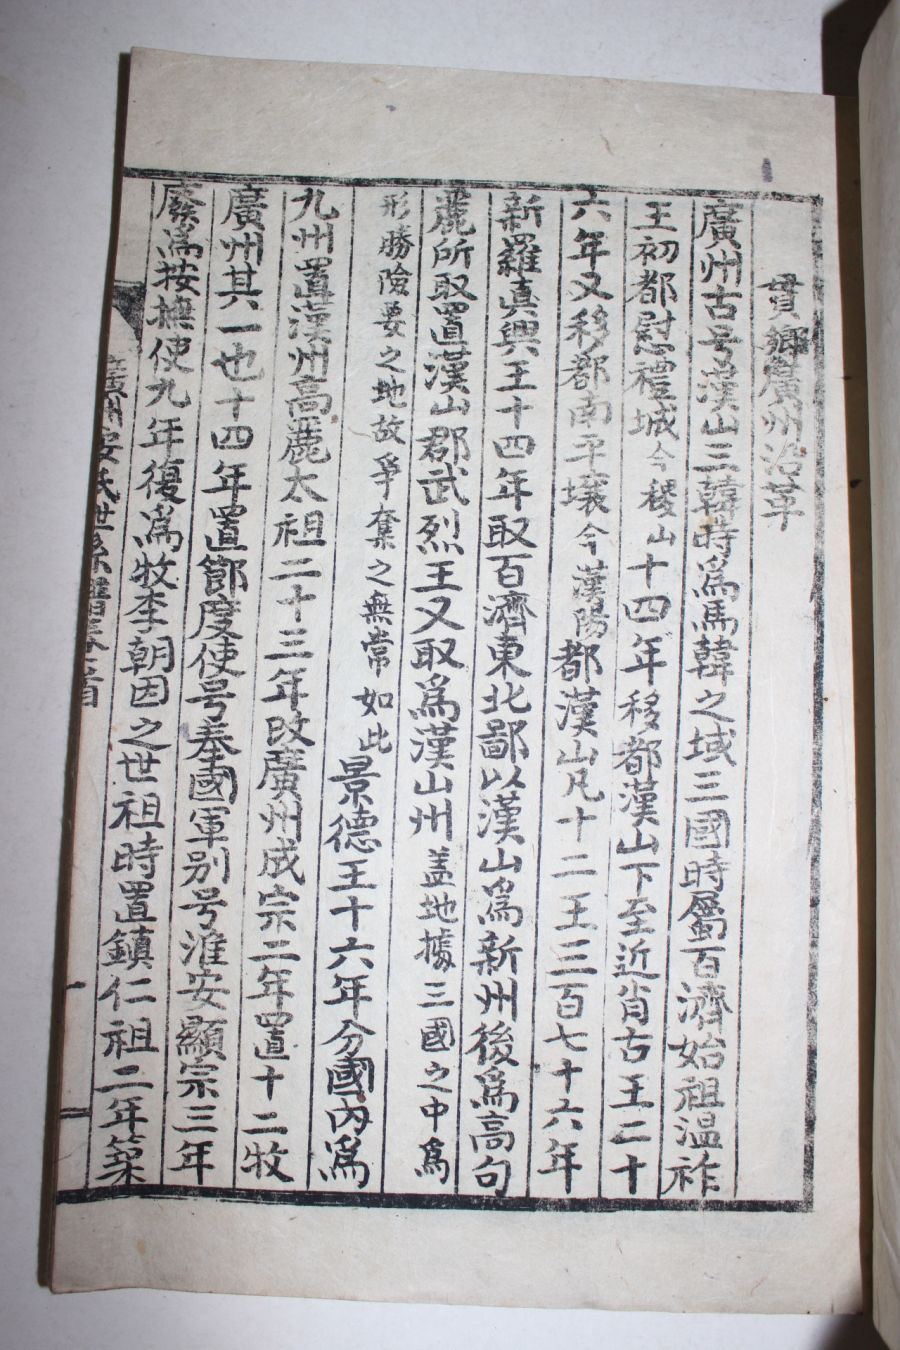 貫鄉廣州沿革
廣州古号漢山三韓時爲馬韓之域三國時屬百濟始祖温祚
王初都慰禮城今稷山十四年移都漢山下至近肖古王二十
六年又移都南平壤今漢陽都漢山凡十二王三百七十六年
新羅眞興王十四年取百濟東北鄙以漢山爲新州後爲高句
麗所取置漢山郡武烈王又取爲漢山州盖地據三國之中爲
形勝險要之地故爭奪之無常如此景德王十六年分國內爲
九州置漢州高麗太祖二十三年改廣州成宗二年置十二牧
廣州其一也十四年置節度使号奉國軍別号淮安顯宗三年
廢爲按撫使九年復爲牧李朝因之世祖時置鎭仁祖二年築
廣州安氏世系譜卷之首